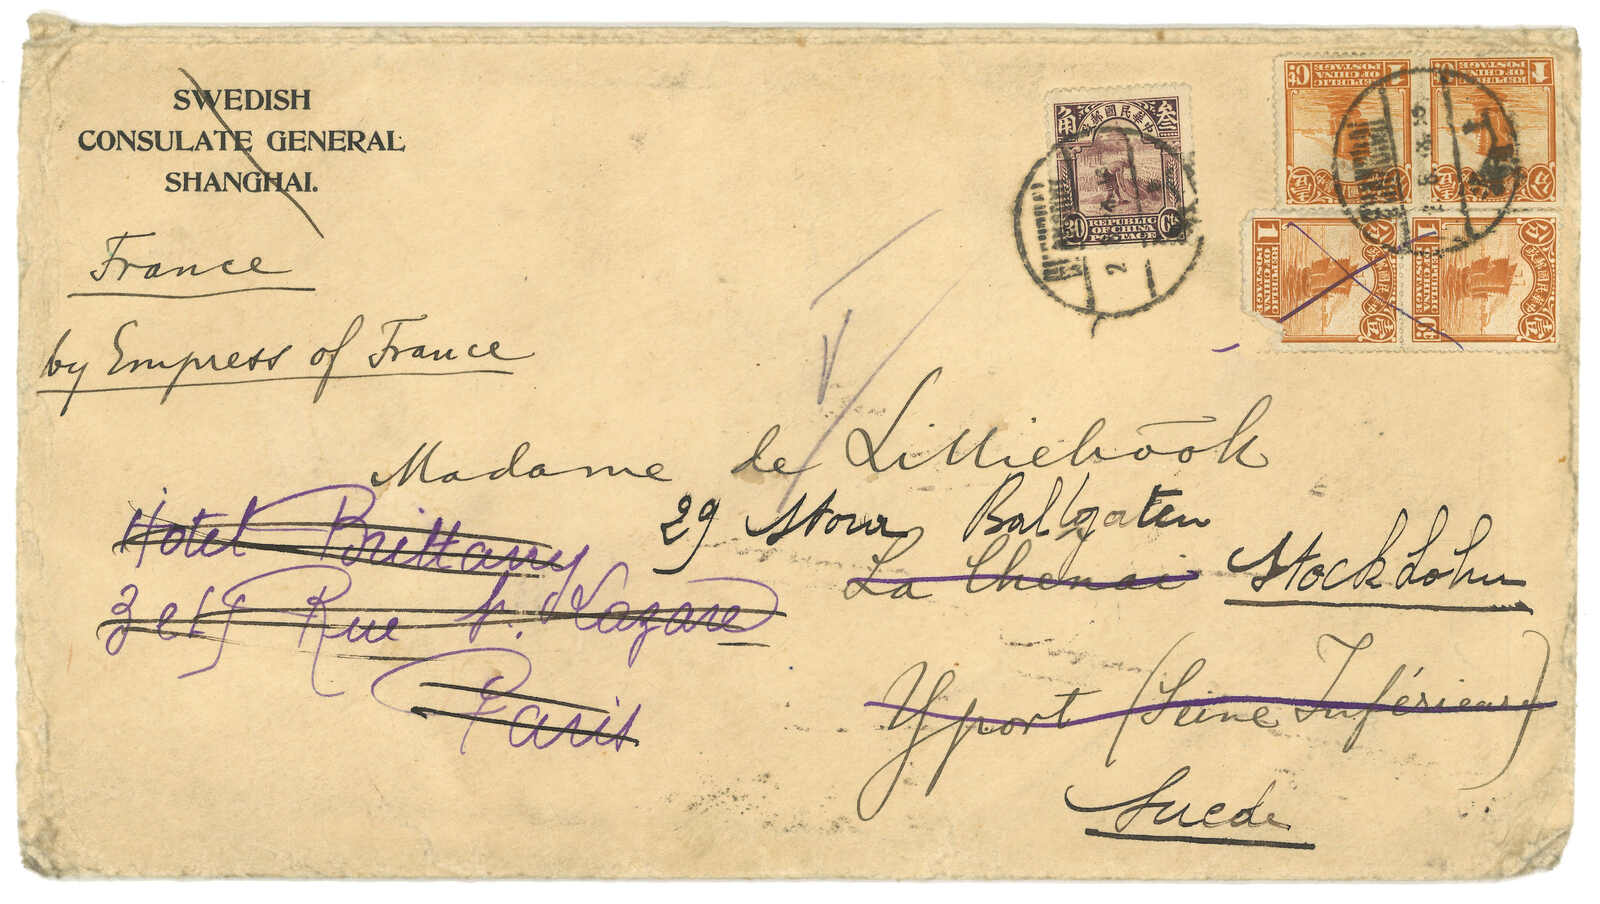 SWEDISH
CONSULATE GENERAL
SHANGHAI.
France
by Empress of France
Madame de Lilliehöök
29 Stora Ballgaten
La Chenai Stockholm
Hotel Brittany
3 et 5 Rue St. Lazare
Paris
Yport (Seine Inférieure)
Suede
叁 中華民國郵政 角
30 REPUBLIC Cts
OF CHINA
POSTAGE
1 REPUBLIC
OF CHINA
POSTAGE
1 REPUBLIC
OF CHINA
POSTAGE
1 REPUBLIC
OF CHINA
POSTAGE
1 REPUBLIC
OF CHINA
POSTAGE